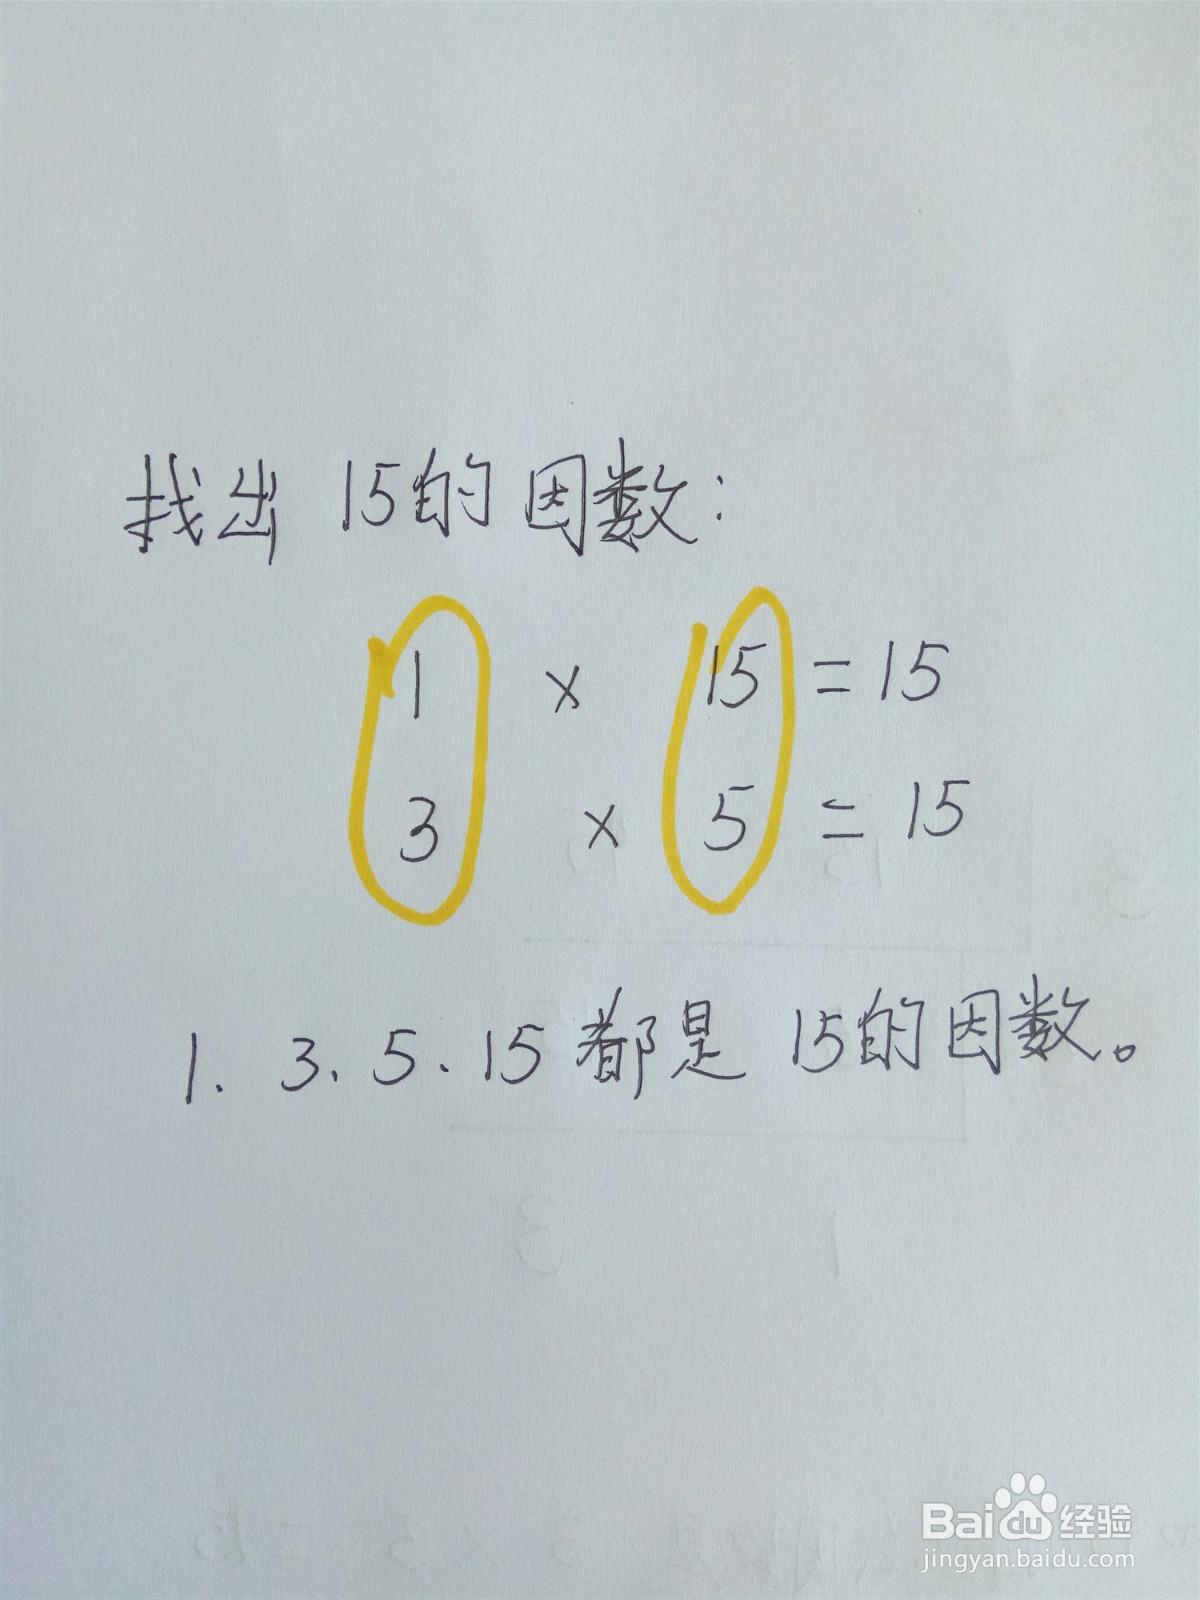 找出 15的因数:
1 × 15 = 15
3 × 5 = 15
1. 3. 5. 15 都是 15的因数。
Baidu经验
jingyan.baidu.com